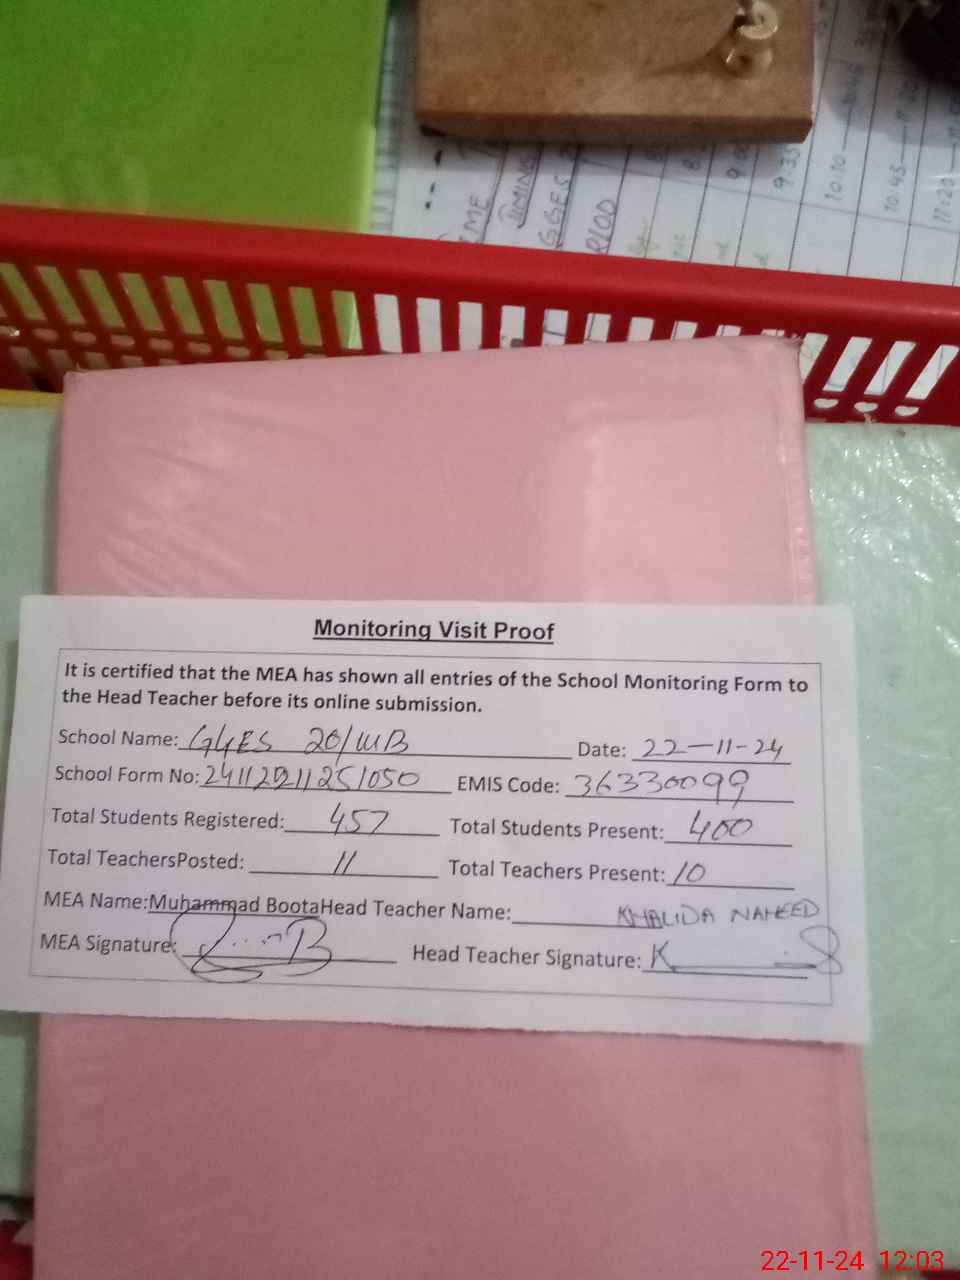 TIME
TIMING
GGES 2
RIOD
9:35
10:10
10:45
11:20
Monitoring Visit Proof
It is certified that the MEA has shown all entries of the School Monitoring Form to
the Head Teacher before its online submission.
School Name: GGES 20/WB Date: 22-11-24
School Form No: EMIS Code: 36330099
Total Students Registered: 457 Total Students Present: 400
Total TeachersPosted: 11 Total Teachers Present: 10
MEA Name:Muhammad BootaHead Teacher Name: KHALIDA NAHEED
MEA Signature: Head Teacher Signature:
22-11-24 12:03